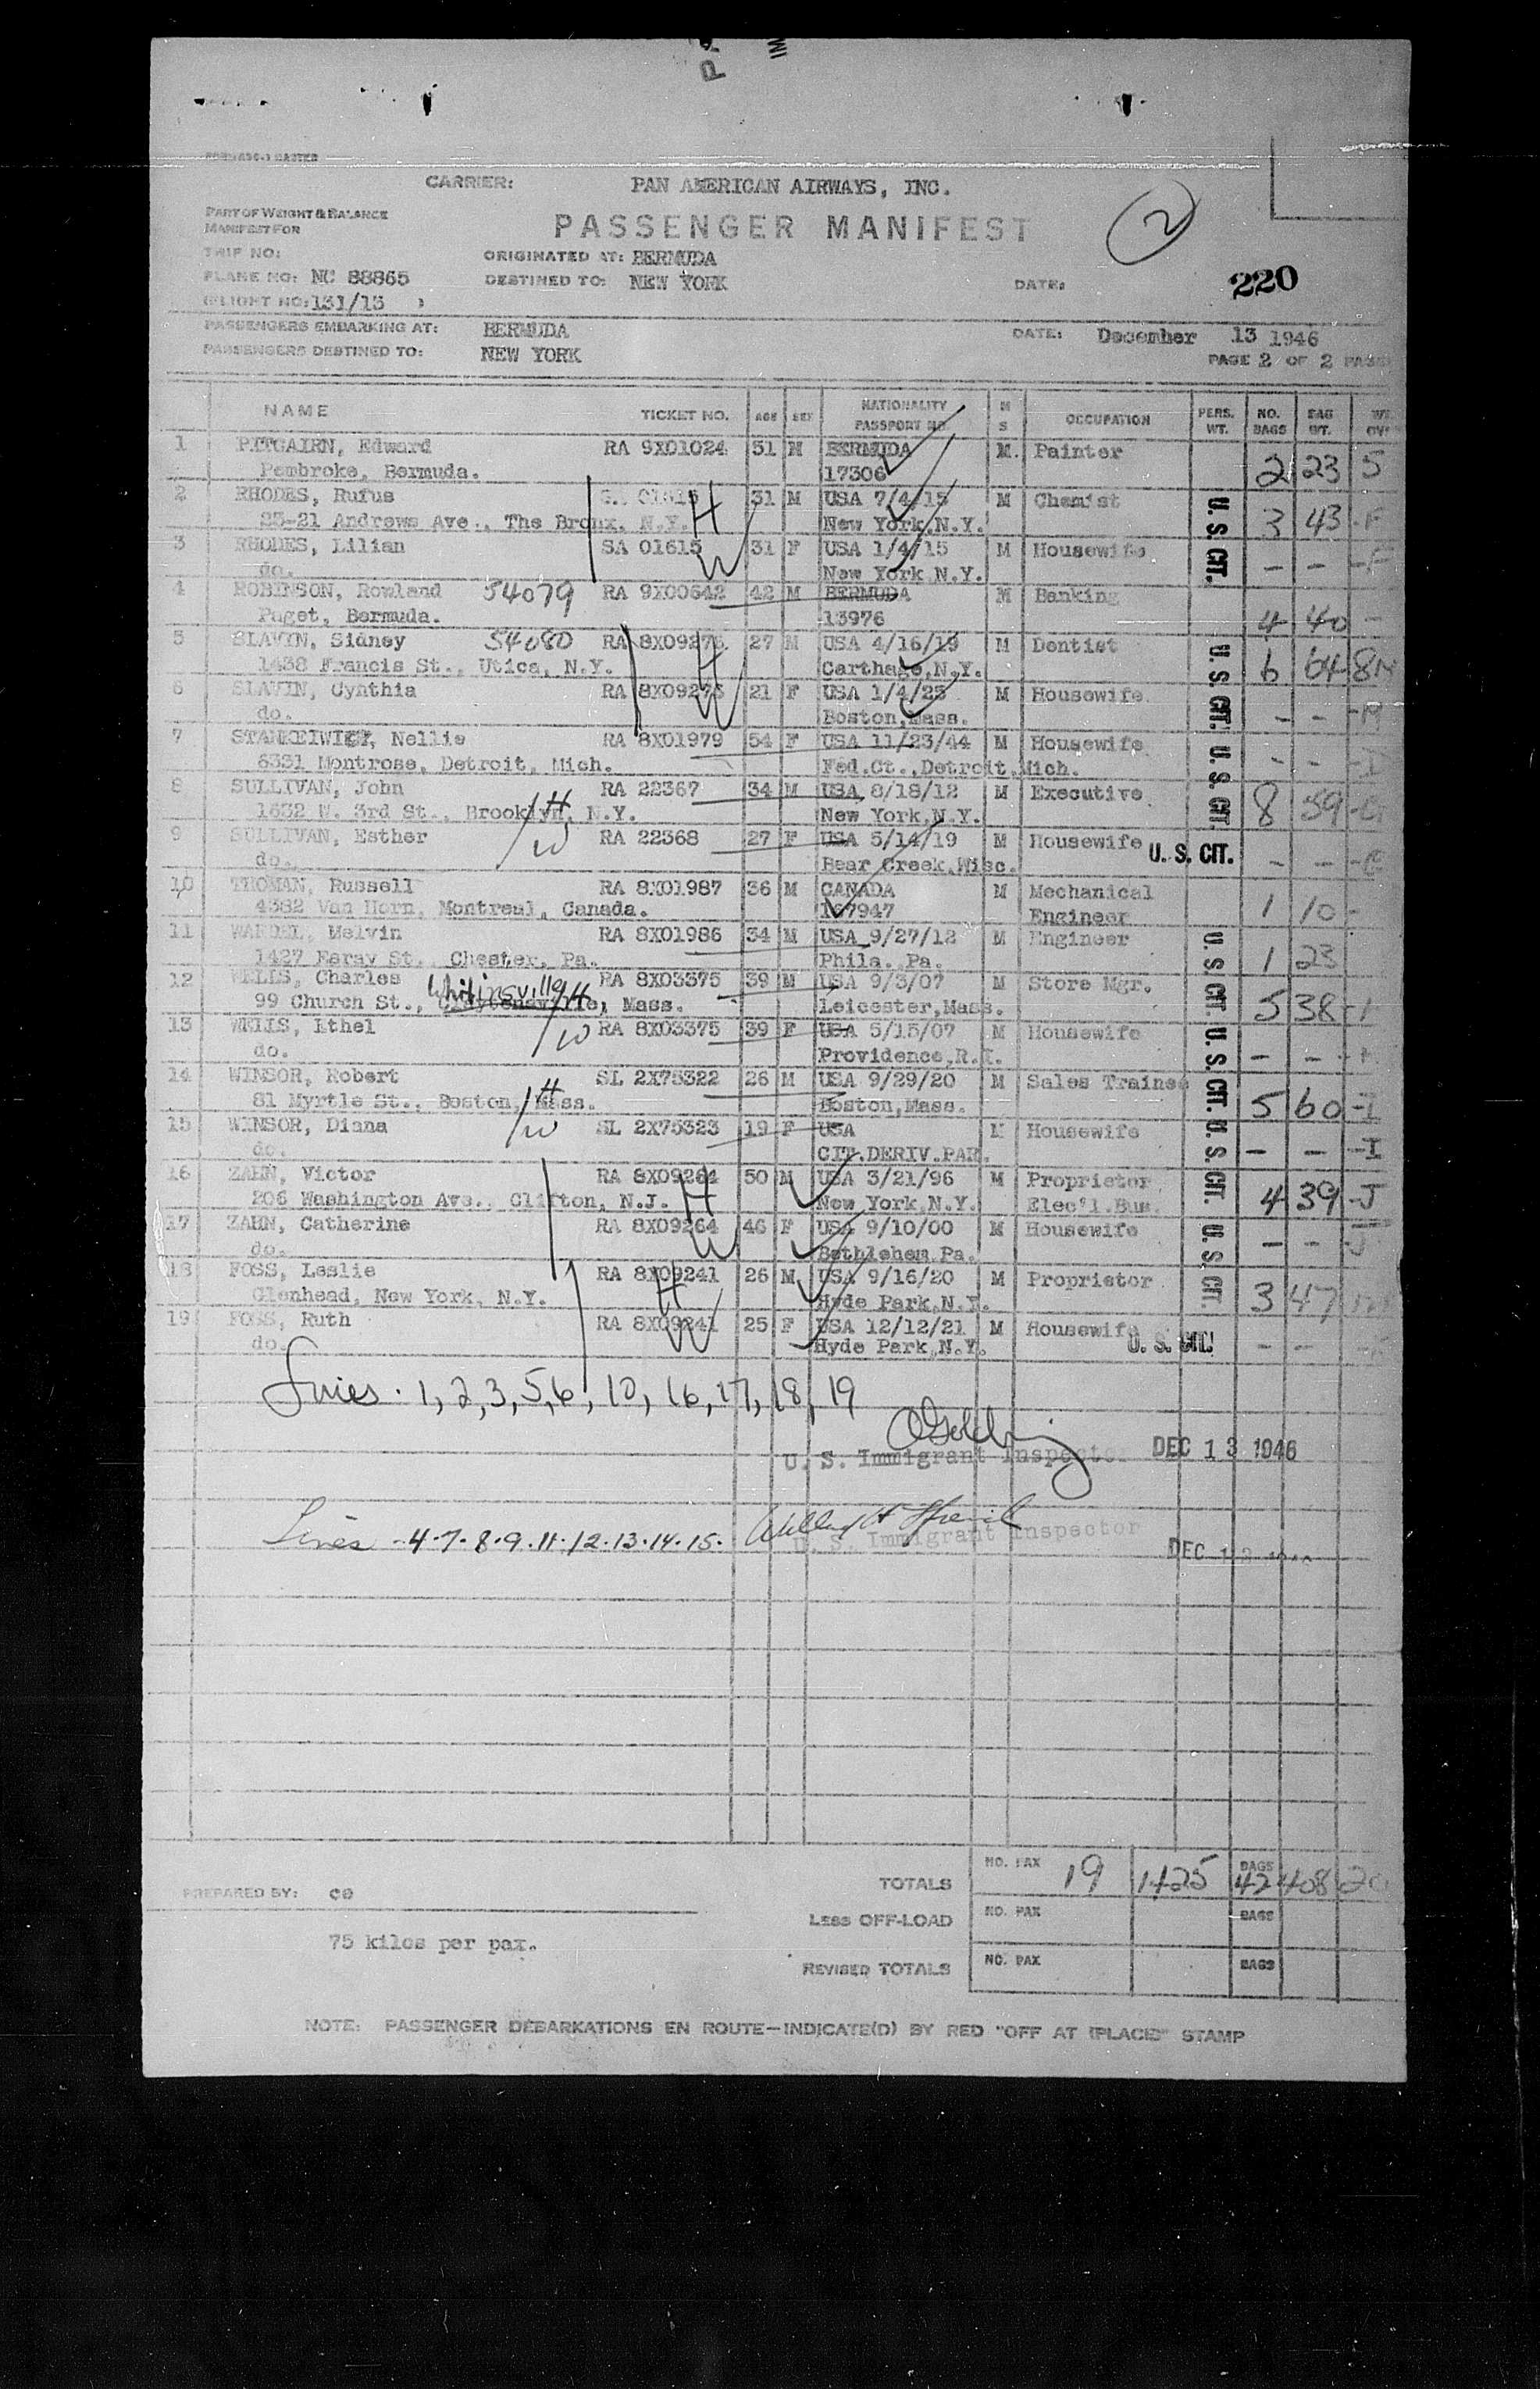 CARRIER: PAN AMERICAN AIRWAYS, INC.
PART OF WEIGHT & BALANCE
MANIFEST FOR
PASSENGER MANIFEST
2
TRIP NO:
ORIGINATED AT: BERMUDA
PLANE NO: NC 88865
DESTINED TO: NEW YORK
DATE:
220
FLIGHT NO: 131/13
PASSENGERS EMBARKING AT: BERMUDA
DATE: December 13 1946
PASSENGERS DESTINED TO: NEW YORK
PAGE 2 OF 2
NAME TICKET NO. AGE SEX NATIONALITY PASSPORT NO. M S OCCUPATION PERS. WT. NO. BAGS BAG WT.
1 PITCAIRN, Edward RA 9X01024 51 M BERMUDA M. Painter
Pembroke, Bermuda. 17306 2 23 5
2 RHODES, Rufus 31 M USA 7/4/15 M Chemist U. S. CIT.
25-21 Andrews Ave., The Bronx, N.Y. H New York, N.Y. 3 43 -F
3 RHODES, Lilian SA 01615 31 F USA 1/4/15 M Housewife
do. W New York N.Y. - - -F
4 ROBINSON, Rowland 54079 RA 9X00642 42 M BERMUDA M Banking
Paget, Bermuda. 13976 4 40 -
5 SLAVIN, Sidney 54080 RA 8X09275 27 M USA 4/16/19 M Dentist U. S. CIT.
1438 Francis St., Utica, N.Y. H Carthage, N.Y. 6 64 -8M
6 SLAVIN, Cynthia RA 8X09275 21 F USA 1/4/25 M Housewife
do. W Boston, Mass. - - -M
7 Nellie RA 8X01979 54 F USA 11/23/44 M Housewife U. S. CIT.
6331 Montrose, Detroit, Mich. Fed. Ct., Detroit, Mich. - - -I
8 SULLIVAN, John RA 22367 34 M USA 8/18/12 M Executive
1632 W. 3rd St., Brooklyn, N.Y. H New York, N.Y. 8 59
9 SULLIVAN, Esther RA 22368 27 F USA 5/14/19 M Housewife U. S. CIT.
do. W Bear Creek, Wisc. - -
10 THOMAN, Russell RA 8X01987 36 M CANADA M Mechanical
4382 Van Horn, Montreal, Canada. 167947 Engineer 1 10 -
11 WARDEL, Melvin RA 8X01986 34 M USA 9/27/12 M Engineer U. S. CIT.
1427 St., Chester, Pa. Phila. Pa. 1 23
12 WELLS, Charles Whitinsville RA 8X03375 39 M USA 9/3/07 M Store Mgr.
99 Church St., Mass. H Leicester, Mass. 5 38
13 WELLS, Ethel RA 8X03375 39 F USA 5/15/07 M Housewife U. S. CIT.
do. W Providence, R.I. - -
14 WINSOR, Robert SL 2X75322 26 M USA 9/29/20 M Sales Trainee
81 Myrtle St., Boston, Mass. H Boston, Mass. 5 60 -I
15 WINSOR, Diana SL 2X75323 19 F USA M Housewife U. S. CIT.
do. W CIT. DERIV. PAR. - - -I
16 ZAHN, Victor RA 8X09264 50 M USA 3/21/96 M Proprietor
206 Washington Ave., Clifton, N.J. H New York, N.Y. Elec'l. Bus. 4 39 -J
17 ZAHN, Catherine RA 8X09264 46 F USA 9/10/00 M Housewife U. S. CIT.
do. W Bethlehem, Pa. - - -J
18 FOSS, Leslie RA 8X09241 26 M USA 9/16/20 M Proprietor
Glenhead, New York, N.Y. H Hyde Park, N.Y. 3 47
19 FOSS, Ruth RA 8X09241 25 F USA 12/12/21 M Housewife
do. W Hyde Park, N.Y. U. S. CIT. - -
Lines . 1, 2, 3, 5, 6, 10, 16, 17, 18, 19
U. S. Immigrant Inspector DEC 13 1946
Lines - 4 - 7 - 8 - 9 - 11 - 12 - 13 - 14 - 15 -
U. S. Immigrant Inspector
DEC
TOTALS NO. PAX 19 1425 BAGS 42 408
PREPARED BY: ce
LESS OFF-LOAD NO. PAX BAGS
75 kilos per pax.
REVISED TOTALS NO. PAX BAGS
NOTE: PASSENGER DEBARKATIONS EN ROUTE—INDICATE(D) BY RED "OFF AT (PLACE)" STAMP